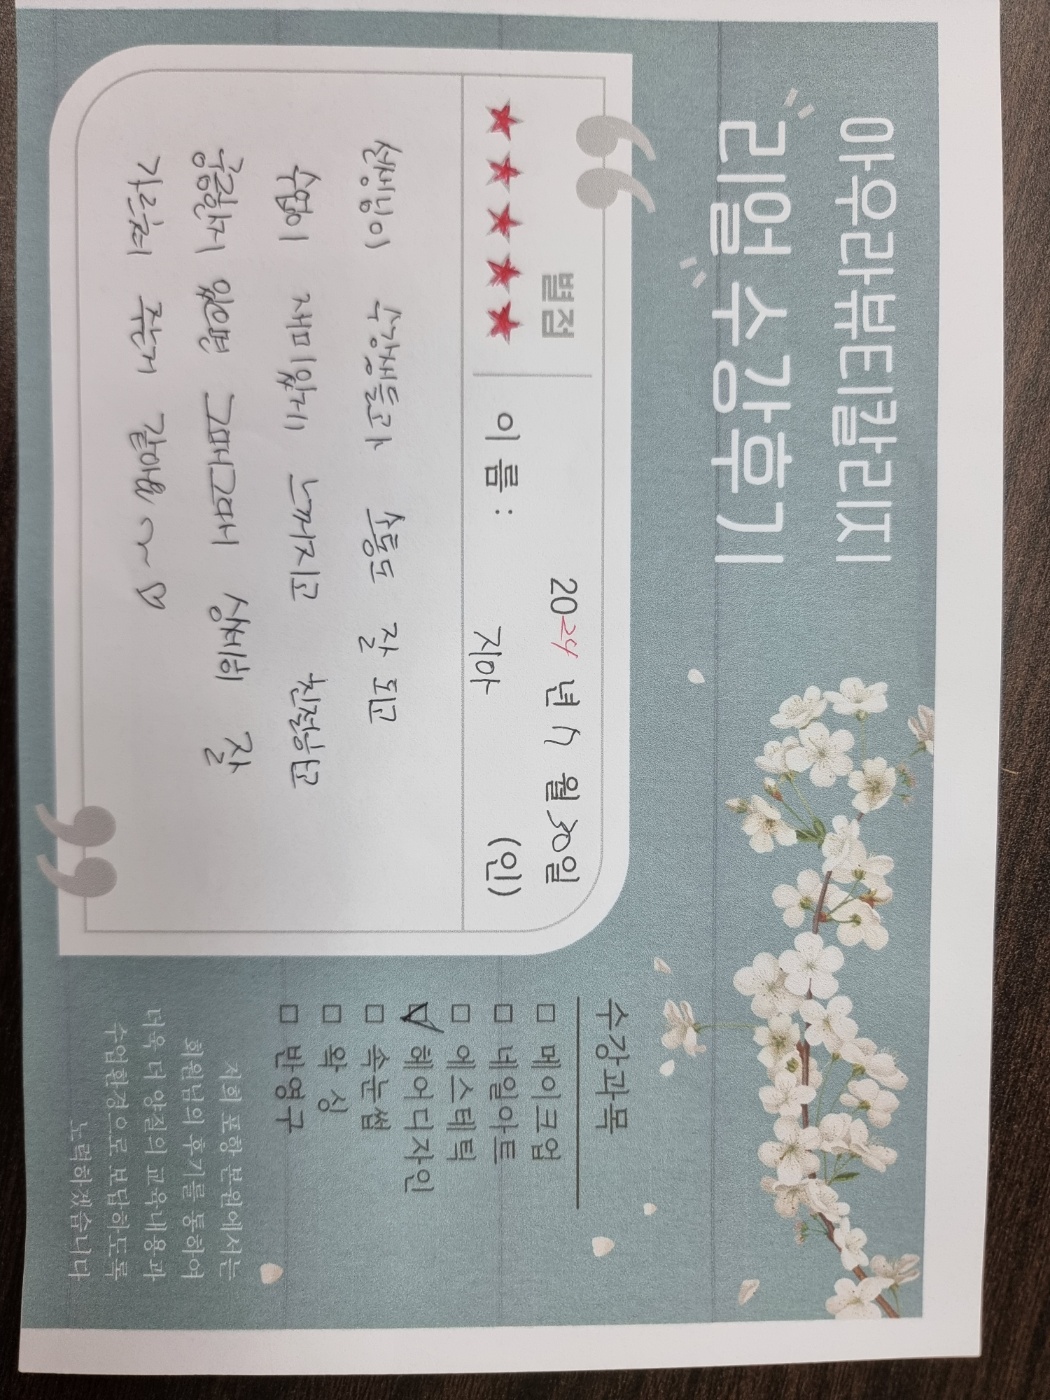 아우라뷰티칼리지
리얼 수강후기
별점
★★★★★
2024 년 5 월 30일
이 름 : 지아 (인)
선생님이 수강생들과 소통도 잘 되고
수업이 재미있게 느껴지고 친절하고
궁금한게 있으면 그때그때 상세히 잘
가르쳐 주는거 같아요 ~~ ♡
수강과목
□ 메이크업
□ 네일아트
□ 에스테틱
☑ 헤어디자인
□ 속눈썹
□ 왁 싱
□ 반영구
저희 포항 본원에서는
회원님의 후기를 통하여
더욱 더 양질의 교육내용과
수업환경으로 보답하도록
노력하겠습니다